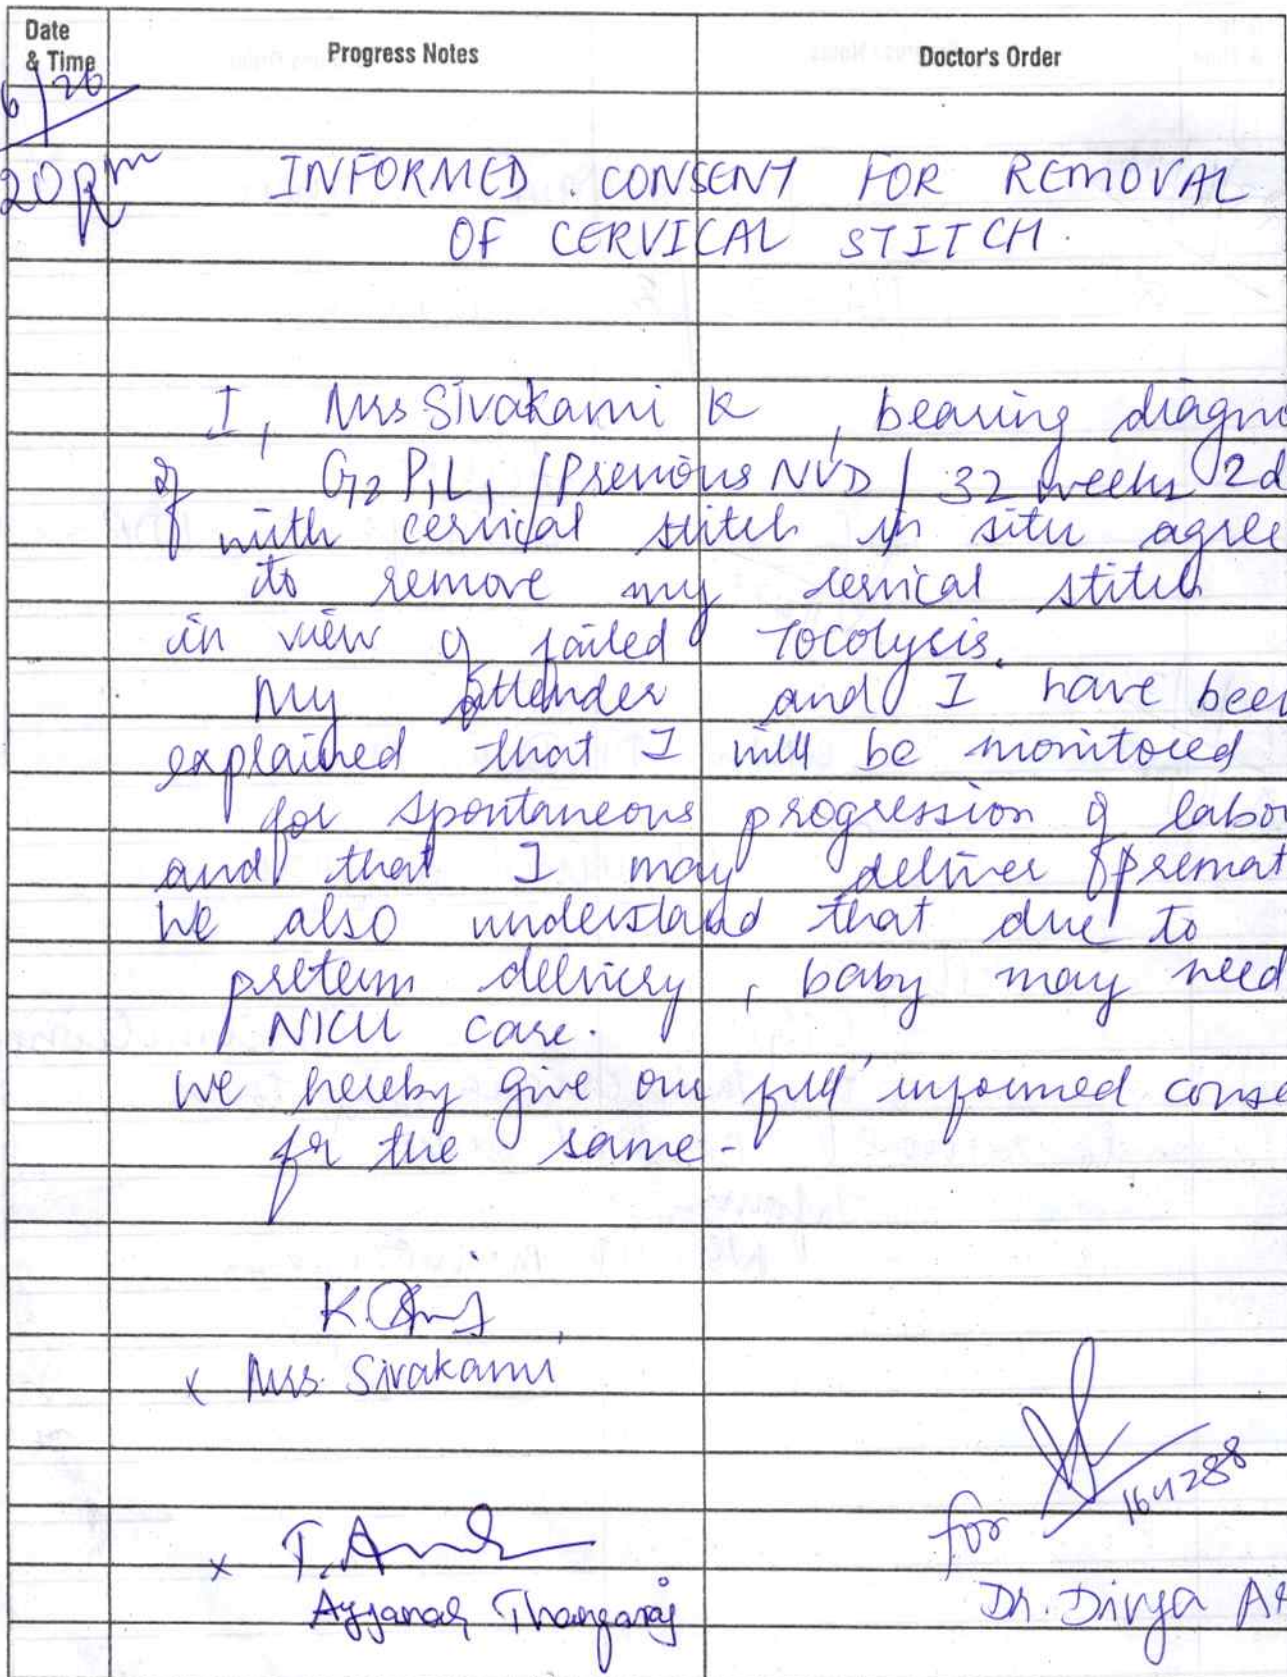 Date
& Time
Progress Notes
Doctor's Order
6/26
20 pm
INFORMED CONSENT FOR REMOVAL
OF CERVICAL STITCH.
I, Mrs Sivakami K, bearing diagno
of G2 P1 L1 / Previous NVD / 32 weeks 2d
with cervical stitch in situ agree
to remove my cervical stitch
in view of failed Tocolysis.
My attender and I have been
explained that I will be monitored
for spontaneous progression of labor
and that I may deliver premat
We also understand that due to
preterm delivery, baby may need
NICU care.
We hereby give our full informed conse
for the same-
x Mrs. Sivakami
for 164288
x
Ayyanar Thangaraj
Dr. Divya